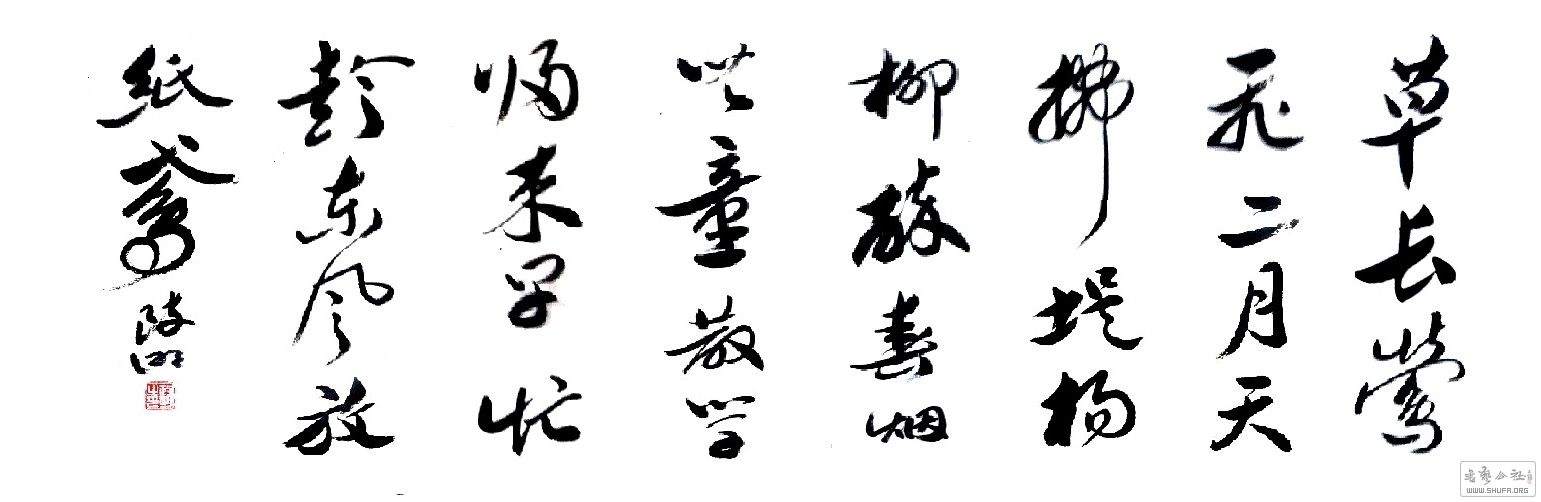 草长莺
飞二月天
拂堤杨
柳醉春烟
儿童散学
归来早忙
趁东风放
纸鸢
书艺公社
WWW.SHUFA.ORG